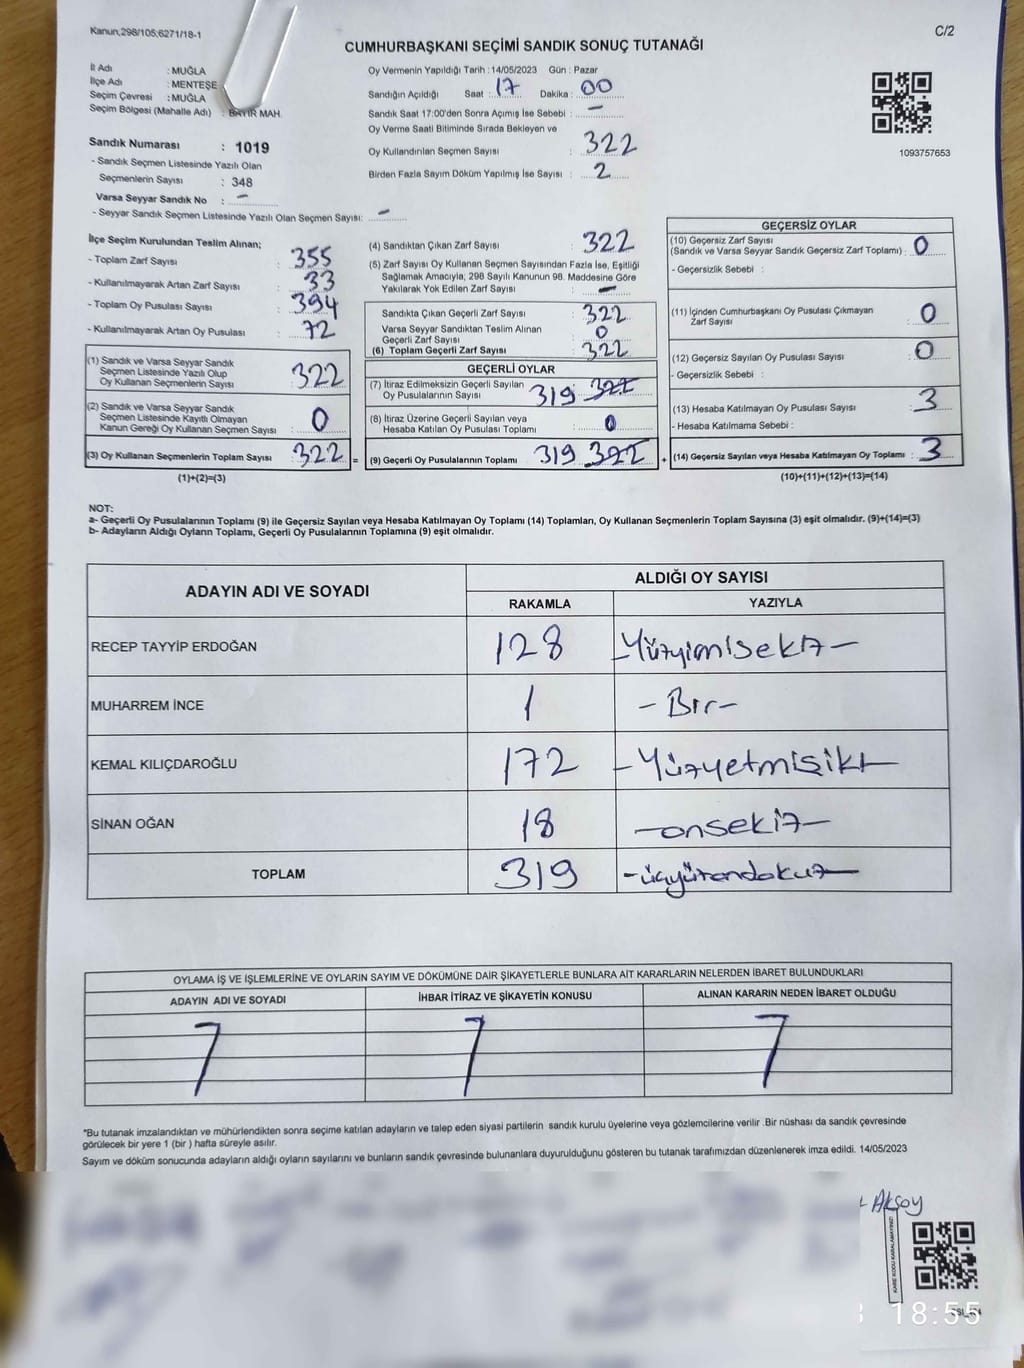 Kanun,298/105;6271/18-1
C/2
CUMHURBAŞKANI SEÇİMİ SANDIK SONUÇ TUTANAĞI
İl Adı : MUĞLA
İlçe Adı : MENTEŞE
Seçim Çevresi : MUĞLA
Seçim Bölgesi (Mahalle Adı) : BAYIR MAH.
Sandık Numarası : 1019
- Sandık Seçmen Listesinde Yazılı Olan
Seçmenlerin Sayısı : 348
Varsa Seyyar Sandık No : -
- Seyyar Sandık Seçmen Listesinde Yazılı Olan Seçmen Sayısı: -
Oy Vermenin Yapıldığı Tarih : 14/05/2023 Gün : Pazar
Sandığın Açıldığı Saat : 17 Dakika : 00
Sandık Saat 17:00'den Sonra Açımış İse Sebebi : -
Oy Verme Saati Bitiminde Sırada Bekleyen ve
Oy Kullandırılan Seçmen Sayısı : 322
Birden Fazla Sayım Döküm Yapılmış İse Sayısı : 2
1093757653
İlçe Seçim Kurulundan Teslim Alınan;
- Toplam Zarf Sayısı : 355
- Kullanılmayarak Artan Zarf Sayısı : 33
- Toplam Oy Pusulası Sayısı : 394
- Kullanılmayarak Artan Oy Pusulası : 72
(1) Sandık ve Varsa Seyyar Sandık
Seçmen Listesinde Yazılı Olup
Oy Kullanan Seçmenlerin Sayısı : 322
(2) Sandık ve Varsa Seyyar Sandık
Seçmen Listesinde Kayıtlı Olmayan
Kanun Gereği Oy Kullanan Seçmen Sayısı : 0
(3) Oy Kullanan Seçmenlerin Toplam Sayısı : 322 =
(1)+(2)=(3)
(4) Sandıktan Çıkan Zarf Sayısı : 322
(5) Zarf Sayısı Oy Kullanan Seçmen Sayısından Fazla İse, Eşitliği
Sağlamak Amacıyla; 298 Sayılı Kanunun 98. Maddesine Göre
Yakılarak Yok Edilen Zarf Sayısı : -
Sandıkta Çıkan Geçerli Zarf Sayısı : 322
Varsa Seyyar Sandıktan Teslim Alınan
Geçerli Zarf Sayısı : 0
(6) Toplam Geçerli Zarf Sayısı : 322
GEÇERLİ OYLAR
(7) İtiraz Edilmeksizin Geçerli Sayılan
Oy Pusulalarının Sayısı : 319 322
(8) İtiraz Üzerine Geçerli Sayılan veya
Hesaba Katılan Oy Pusulası Toplamı : 0
(9) Geçerli Oy Pusulalarının Toplamı 319 322 +
GEÇERSİZ OYLAR
(10) Geçersiz Zarf Sayısı
(Sandık ve Varsa Seyyar Sandık Geçersiz Zarf Toplamı) : 0
- Geçersizlik Sebebi :
(11) İçinden Cumhurbaşkanı Oy Pusulası Çıkmayan
Zarf Sayısı : 0
(12) Geçersiz Sayılan Oy Pusulası Sayısı : 0
- Geçersizlik Sebebi :
(13) Hesaba Katılmayan Oy Pusulası Sayısı : 3
- Hesaba Katılmama Sebebi :
(14) Geçersiz Sayılan veya Hesaba Katılmayan Oy Toplamı : 3
(10)+(11)+(12)+(13)=(14)
NOT:
a- Geçerli Oy Pusulalarının Toplamı (9) ile Geçersiz Sayılan veya Hesaba Katılmayan Oy Toplamı (14) Toplamları, Oy Kullanan Seçmenlerin Toplam Sayısına (3) eşit olmalıdır. (9)+(14)=(3)
b- Adayların Aldığı Oyların Toplamı, Geçerli Oy Pusulalarının Toplamına (9) eşit olmalıdır.
ADAYIN ADI VE SOYADI
ALDIĞI OY SAYISI
RAKAMLA YAZIYLA
RECEP TAYYİP ERDOĞAN 128 -Yüzyirmisekiz-
MUHARREM İNCE 1 -Bir-
KEMAL KILIÇDAROĞLU 172 -Yüzyetmişiki-
SİNAN OĞAN 18 -onsekiz-
TOPLAM 319 -üçyüzondokuz-
OYLAMA İŞ VE İŞLEMLERİNE VE OYLARIN SAYIM VE DÖKÜMÜNE DAİR ŞİKAYETLERLE BUNLARA AİT KARARLARIN NELERDEN İBARET BULUNDUKLARI
ADAYIN ADI VE SOYADI İHBAR İTİRAZ VE ŞİKAYETİN KONUSU ALINAN KARARIN NEDEN İBARET OLDUĞU
*Bu tutanak imzalandıktan ve mühürlendikten sonra seçime katılan adayların ve talep eden siyasi partilerin sandık kurulu üyelerine veya gözlemcilerine verilir .Bir nüshası da sandık çevresinde
görülecek bir yere 1 (bir ) hafta süreyle asılır.
Sayım ve döküm sonucunda adayların aldığı oyların sayılarını ve bunların sandık çevresinde bulunanlara duyurulduğunu gösteren bu tutanak tarafımızdan düzenlenerek imza edildi. 14/05/2023
Aksoy
KARE KODU KARALAMAYINIZ!
18:55